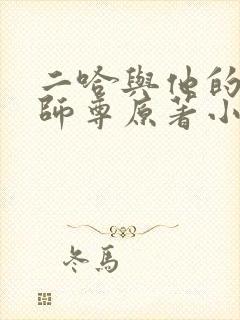 二哈與他的
師尊原著小
冬馬